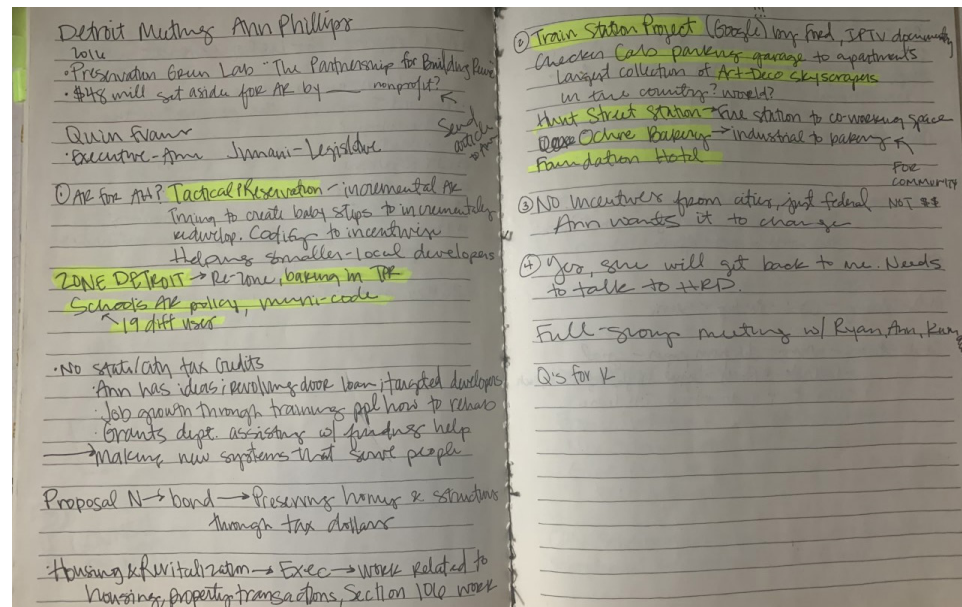 Detroit Meeting Ann Phillips
2016
· Preservation Green Lab "The Partnership for Building Reuse
· $48 mill set aside for AR by ___ nonprofit?
Send
article
Quin Evans
· Executive - Ann Jimani - Legislative
① AR for AH? Tactical Preservation - incremental AR
Trying to create baby steps to incrementally
redevelop. Codify to incentivize
Helping smaller-local developers
ZONE DETROIT → Re-zone, baking in TPR
Schools AR policy, muni-code
19 diff uses
· No state/city tax credits
· Ann has ideas; revolving door loan; targeted developers
· Job growth through training ppl how to rehab
· Grants dept. assisting w/ funding help
→ Making new systems that serve people
Proposal N → bond → Preserving homes & structures
through tax dollars
· Housing & Revitalization → Exec → work related to
housing, property transactions, Section 106 work
② Train Station Project (Google) long Ford, IPTV documentary
Checker Cab parking garage to apartments
Largest collection of Art-Deco skyscrapers
in the country? World?
Hunt Street Station → Fire station to co-working space
Ochre Bakery → industrial to bakery
Foundation Hotel
FOR
COMMUNITY
NOT $$
③ NO incentives from cities, just federal
Ann wants it to change
④ Yes, she will get back to me. Needs
to talk to HRD.
Full-group meeting w/ Ryan, Ann,
Q's for K